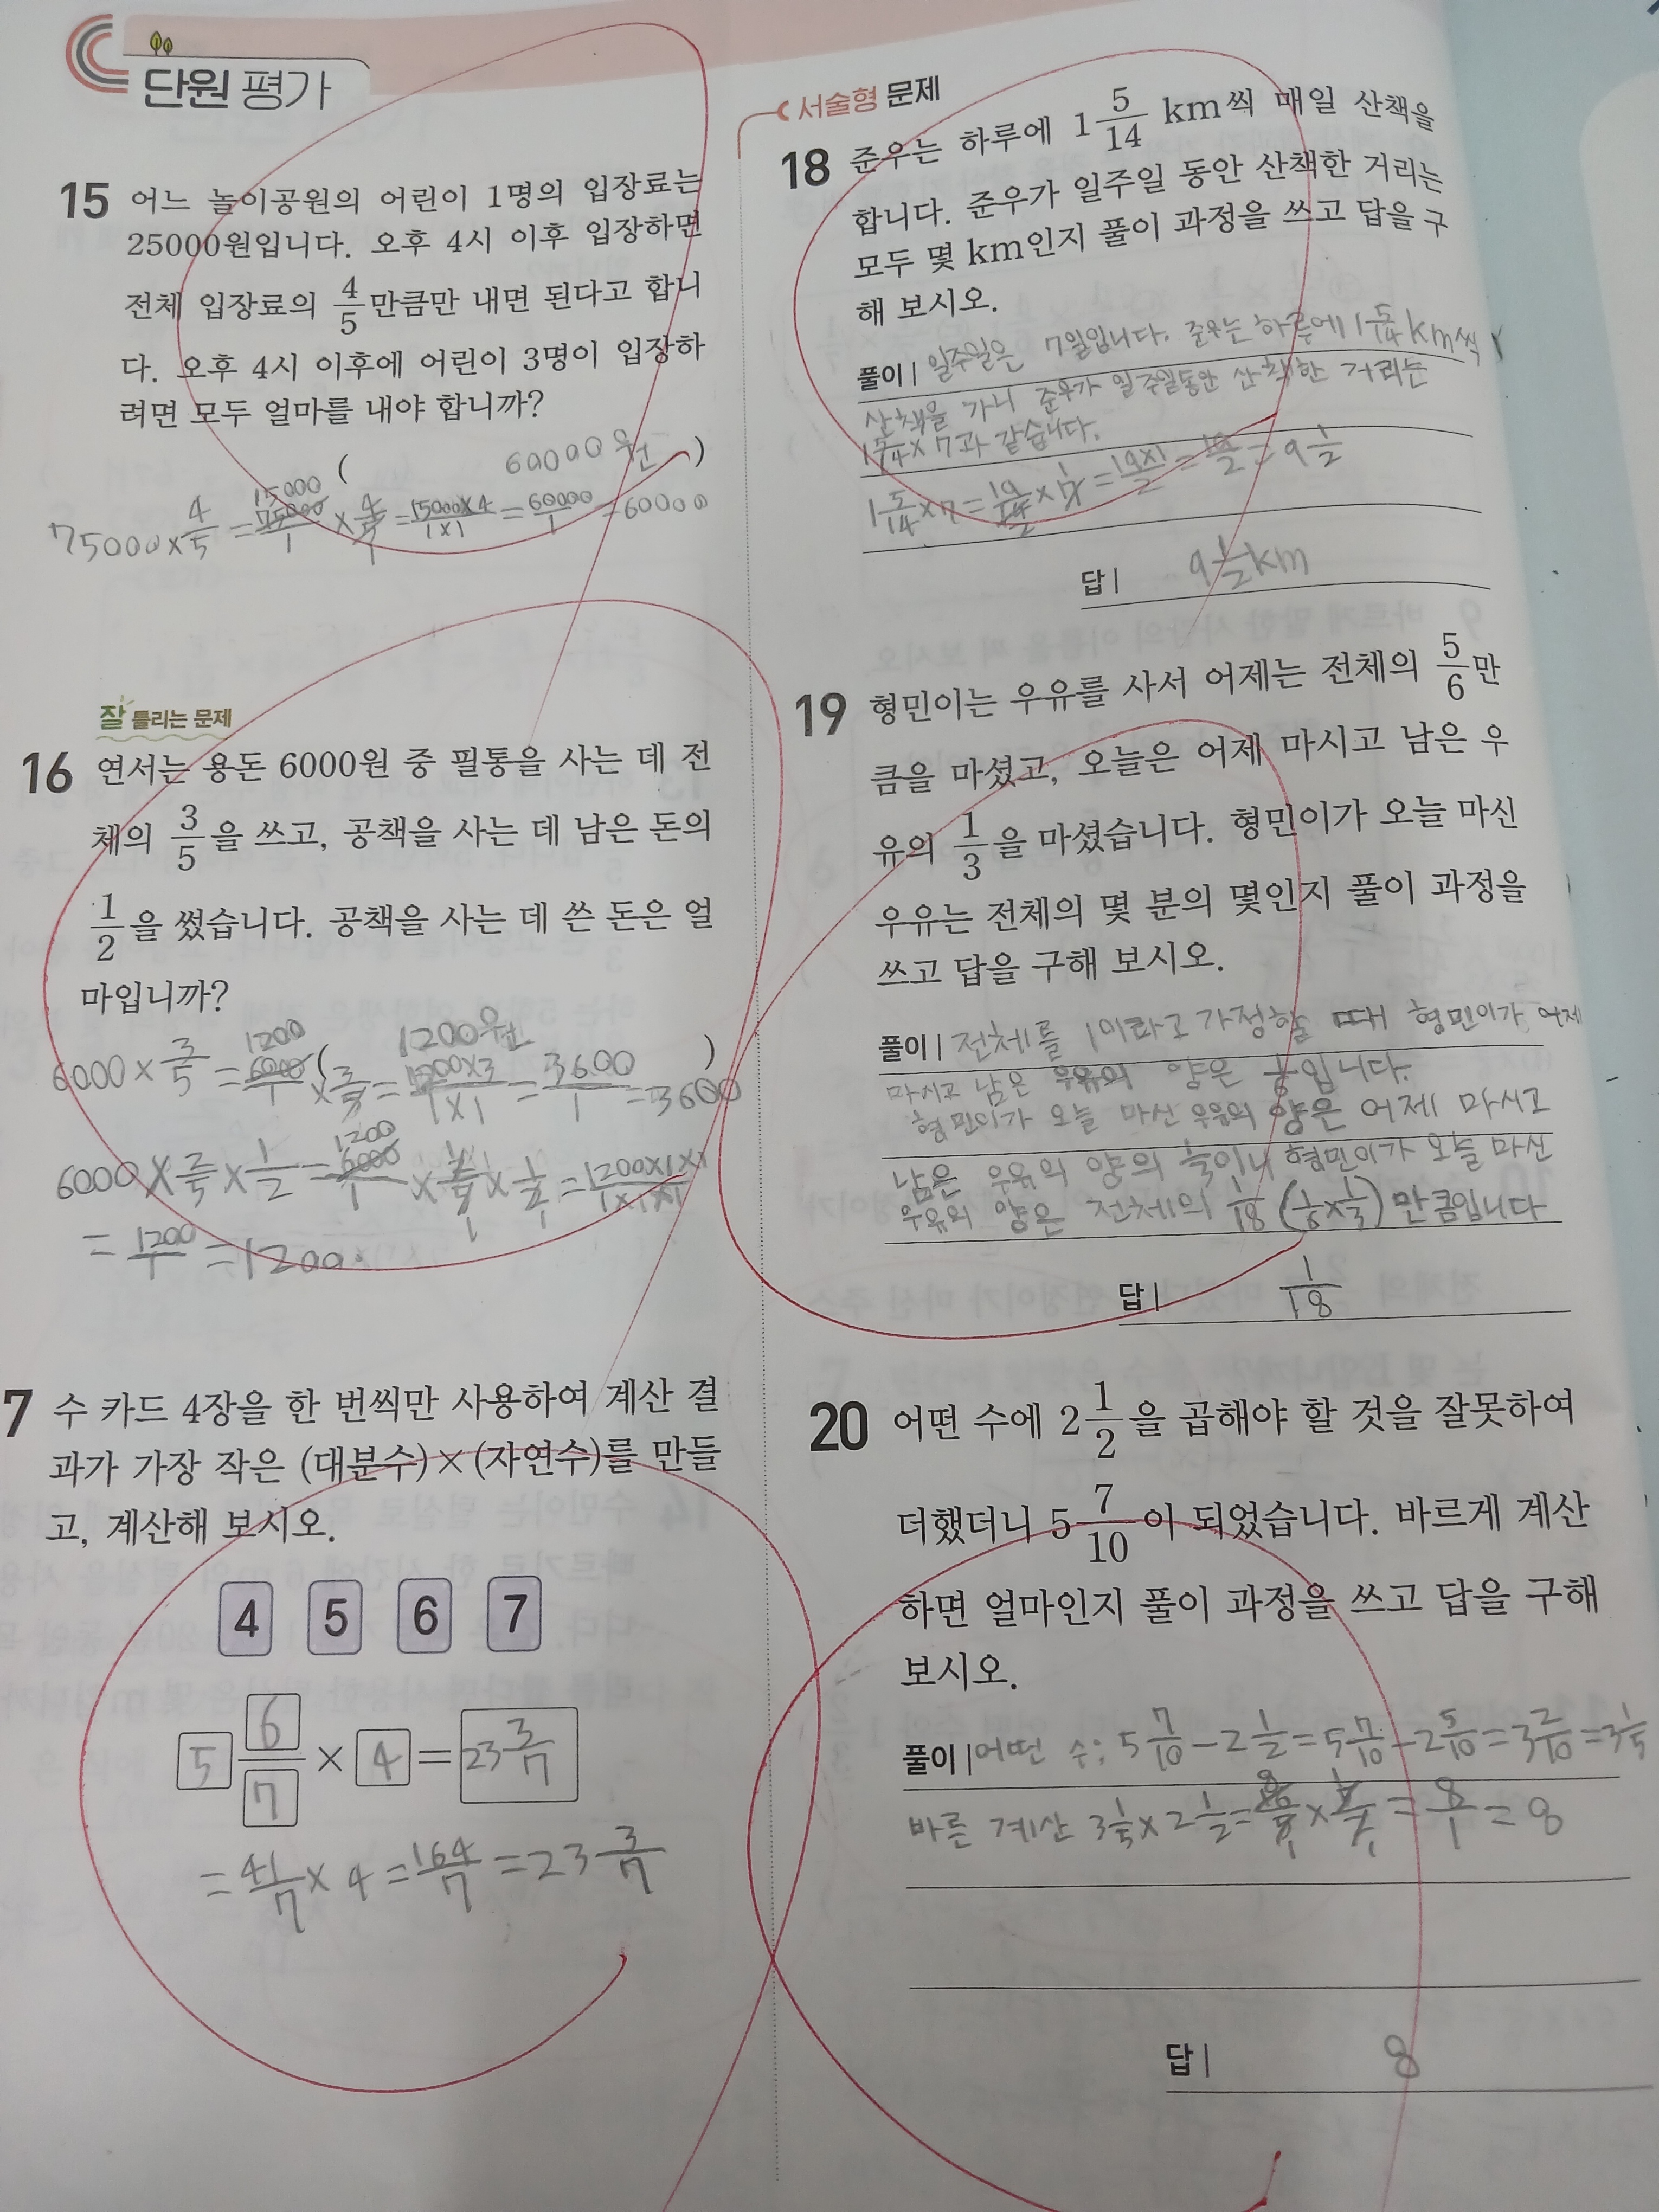 단원 평가
15 어느 놀이공원의 어린이 1명의 입장료는
25000원입니다. 오후 4시 이후 입장하면
전체 입장료의 4/5만큼만 내면 된다고 합니
다. 오후 4시 이후에 어린이 3명이 입장하
려면 모두 얼마를 내야 합니까?
( 60000원 )
75000×4/5=75000/1×4/5=15000×4/1×1=60000/1=60000
15000
1
잘 틀리는 문제
16 연서는 용돈 6000원 중 필통을 사는 데 전
체의 3/5을 쓰고, 공책을 사는 데 남은 돈의
1/2을 썼습니다. 공책을 사는 데 쓴 돈은 얼
마입니까?
( 1200원 )
1200
6000×3/5=6000/1×3/5=1200×3/1×1=3600/1=3600
1200
6000×2/5×1/2=6000/1×2/5×1/2=1200×1×1/1×1×1
=1200/1=1200
7 수 카드 4장을 한 번씩만 사용하여 계산 결
과가 가장 작은 (대분수)×(자연수)를 만들
고, 계산해 보시오.
4 5 6 7
5 6/7 × 4 = 23 3/7
=41/7×4=164/7=23 3/7
서술형 문제
18 준우는 하루에 1 5/14 km씩 매일 산책을
합니다. 준우가 일주일 동안 산책한 거리는
모두 몇 km인지 풀이 과정을 쓰고 답을 구
해 보시오.
풀이 | 일주일은 7일입니다. 준우는 하루에 1 5/14 km씩
산책을 가니 준우가 일주일동안 산책한 거리는
1 5/14×7과 같습니다.
1 5/14×7=19/14×7=19×1/2=19/2=9 1/2
답 | 9 1/2 km
19 형민이는 우유를 사서 어제는 전체의 5/6만
큼을 마셨고, 오늘은 어제 마시고 남은 우
유의 1/3을 마셨습니다. 형민이가 오늘 마신
우유는 전체의 몇 분의 몇인지 풀이 과정을
쓰고 답을 구해 보시오.
풀이 | 전체를 1이라고 가정할 때 형민이가 어제
마시고 남은 우유의 양은 1/6입니다.
형민이가 오늘 마신 우유의 양은 어제 마시고
남은 우유의 양의 1/3이니 형민이가 오늘 마신
우유의 양은 전체의 1/18 (1/6×1/3) 만큼입니다
답 | 1/18
20 어떤 수에 2 1/2을 곱해야 할 것을 잘못하여
더했더니 5 7/10이 되었습니다. 바르게 계산
하면 얼마인지 풀이 과정을 쓰고 답을 구해
보시오.
풀이 | 어떤 수; 5 7/10-2 1/2=5 7/10-2 5/10=3 2/10=3 1/5
바른 계산 3 1/5×2 1/2=16/5×5/2=8/1=8
답 | 8